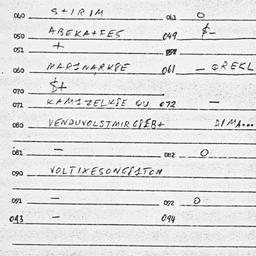 060 S+IRIM 062 0
050 ABEKA+FES 049 $-
051 +
060 MARINARKSE 061 - QREKL
070 $+
071 KAMIZELKSE QU 072 -
080 VENDUVOLSTMIRC$EB+ DIMA...
081 - 082 0
090 VOLTIXESONG$ITON
091 - 092 0
093 - 094